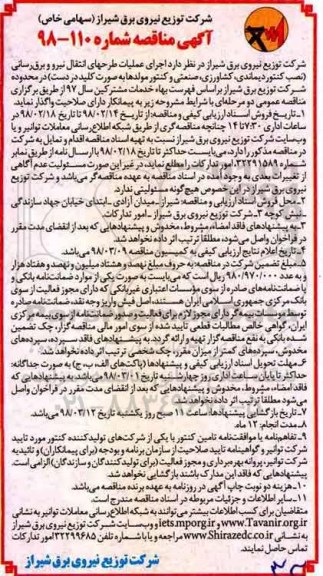 شرکت توزیع نیروی برق شیراز (سهامی خاص)
آگهی مناقصه شمار ۱۱۰۰-۹۸
شرکت توزیع نیروی برق شیراز در نظر دارد اجرای عملیات طرحهای انتقال نیرو و برق‌رسانی
(نصب کنتور دیماندی، کشاورزی، صنعتی و کنتور مولدها به صورت کلید در دست) در محدوده
شرکت توزیع برق شیراز بر اساس فهرست بهاء خدمات مشترکین سال ۹۷ از طریق برگزاری
مناقصه عمومی دو مرحله‌ای با شرایط مشروحه زیر به پیمانکار دارای صلاحیت واگذار نماید.
۱-تاریخ فروش اسناد ارزیابی کیفی و مناقصه: از تاریخ ۹۸/۰۲/۱۴ تا تاریخ ۹۸/۰۲/۱۸ در
ساعات اداری ۷:۳۰ تا ۱۴ چنانچه مناقصه‌گری از طریق شبکه اطلاع‌رسانی معاملات توانیر و یا
وب‌سایت شرکت توزیع نیروی برق شیراز نسبت به تهیه اسناد مناقصه اقدام و تمایل به شرکت
در مناقصه مذکور را دارد، می‌بایست حداکثر تا تاریخ ۹۸/۰۲/۱۸ با ارسال نامه از طریق نمابر
شماره ۳۲۲۹۱۵۸۹ امور تدارکات را مطلع نماید، در غیر این صورت مسئولیت عدم آگاهی
از تغییرات بعدی به وجود آمده در اسناد مناقصه به عهده مناقصه گر می‌باشد و شرکت توزیع
نیروی برق شیراز در این خصوص هیچ گونه مسئولیتی ندارد.
۲- محل فروش اسناد ارزیابی و مناقصه: شیراز_میدان آزادی_ابتدای خیابان جهاد سازندگی
_نبش کوچه ۳_شرکت توزیع نیروی برق شیراز _امور تدارکات.
۳-به پیشنهادهای فاقد امضاء، مشروط، مخدوش و پیشنهادهایی که بعد از انقضای مدت مقرر
در فراخوان واصل می‌شود، مطلقاً ترتیب اثر داده نخواهد شد.
۴-تاریخ اعلام نتایج ارزیابی کیفی به کمیسیون مناقصه ۹۸/۰۳/۰۹ می‌باشد.
۵-مبلغ تضمین شرکت در مناقصه: به حروف مبلغ نهصد و هشتاد میلیون و نهصد و هفتاد هزار
و به عدد ۹۸۰/۹۷۰/۰۰۰ ریال است که می‌بایست به صورت یکی از موارد ضمانت‌نامه بانکی و
یا ضمانت‌نامه‌های صادره از سوی مؤسسات اعتباری غیربانکی که دارای مجوز فعالیت از سوی
بانک مرکزی جمهوری اسلامی ایران هستند، اصل فیش واریز وجه نقد، ضمانت‌نامه صادره
توسط موسسات بیمه گر دارای مجوز لازم برای فعالیت و صدور ضمانت‌نامه از سوی بیمه مرکزی
ایران، گواهی خالص مطالبات قطعی تایید شده از سوی امور مالی مناقصه‌گزار، چک تضمین
شده بانکی به نفع مناقصه گزار تهیه و ارائه گردد. به پیشنهادهای فاقد سپرده، سپرده‌های
مخدوش، سپرده‌های کمتر از میزان مقرر، چک شخصی ترتیب اثر داده نخواهد شد.
۶-مهلت تحویل اسناد ارزیابی کیفی و پیشنهادها (پاکت‌های الف، ب، ج) به صورت جداگانه:
حداکثر تا پایان ساعت اداری روز چهارشنبه تاریخ ۹۸/۰۳/۰۱ می‌باشد. به پیشنهادهایی که
فاقد امضاء، مشروط، مخدوش و پیشنهادهایی که بعد از انقضای مدت مقرر در فراخوان واصل
می‌شود مطلقاً ترتیب اثر داده نخواهد شد.
۷-تاریخ بازگشایی پیشنهادها: ساعت ۱۱ صبح روز یکشنبه تاریخ ۹۸/۰۳/۱۲ می‌باشد.
۸-مدت انجام: ۱۲ ماه.
۹-تفاهم‌نامه یا موافقت‌نامه تامین کنتور با یکی از شرکت‌های تولیدکننده کنتور مورد تایید
شرکت توانیر و گواهینامه تایید صلاحیت از سازمان برنامه و بودجه (برای پیمانکاران) و تائیدیه
شرکت توانیر، پروانه بهره برداری و مجوز فعالیت (برای تولیدکنندگان و سازندگان) الزامی است.
پیشنهادهایی که فاقد این مدارک باشند بازگشایی نخواهد شد.
۱۰-هزینه دو نوبت چاپ آگهی در روزنامه به عهده برنده مناقصه می‌باشد.
۱۱-سایر اطلاعات و جزئیات مربوطه در اسناد مناقصه مندرج است.
متقاضیان برای کسب اطلاعات بیشتر می‌توانند به شبکه اطلاع‌رسانی معاملات توانیر به نشانی
www.Tavanir.org.ir و iets.mporg.ir و وب‌سایت شرکت توزیع نیروی برق شیراز
به نشانی www.Shirazedc.co.ir مراجعه و یا با شماره تلفن ۳۲۲۹۹۶۸۵ امور تدارکات
تماس حاصل نمایند.
شرکت توزیع نیروی برق شیراز